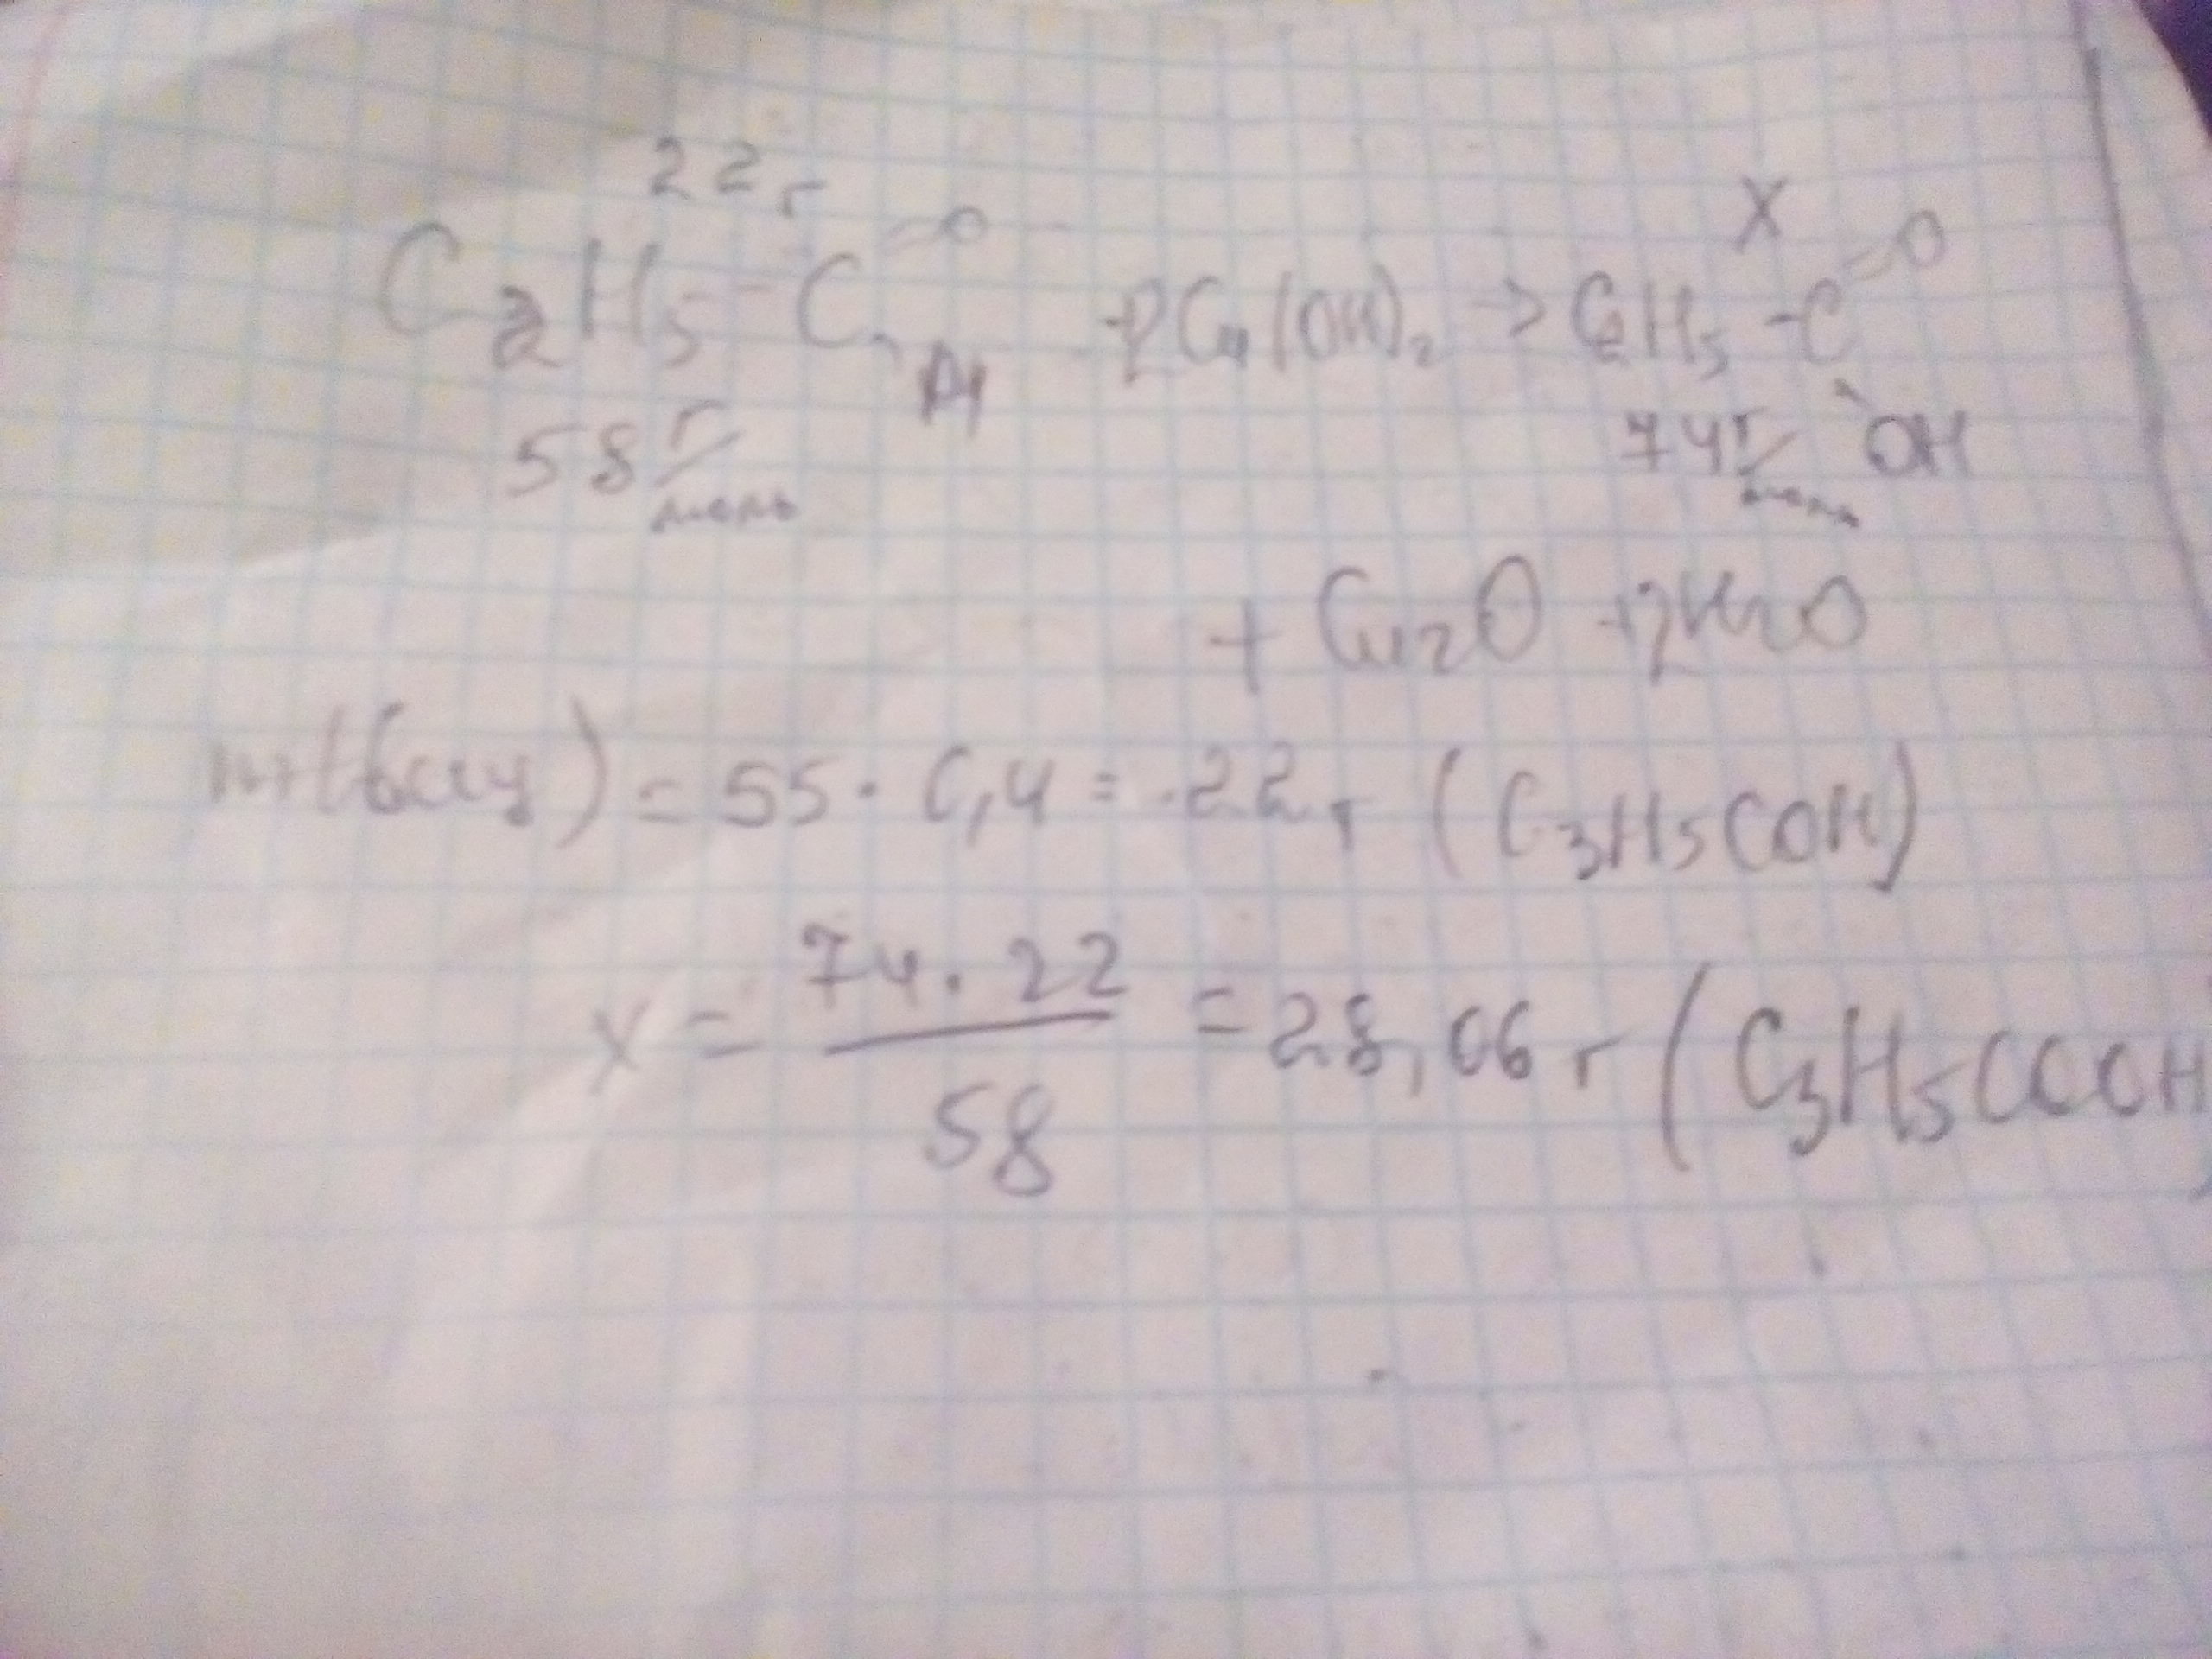 22г X
C2H5-C=O H +2Cu(OH)2 → C2H5-C=O OH
58 г/моль 74 г/моль
+ Cu2O + 2H2O
m(вещ) = 55 · 0,4 = 22г (C3H5COH)
x = 74 · 22 / 58 = 28,06 г (C3H5COOH